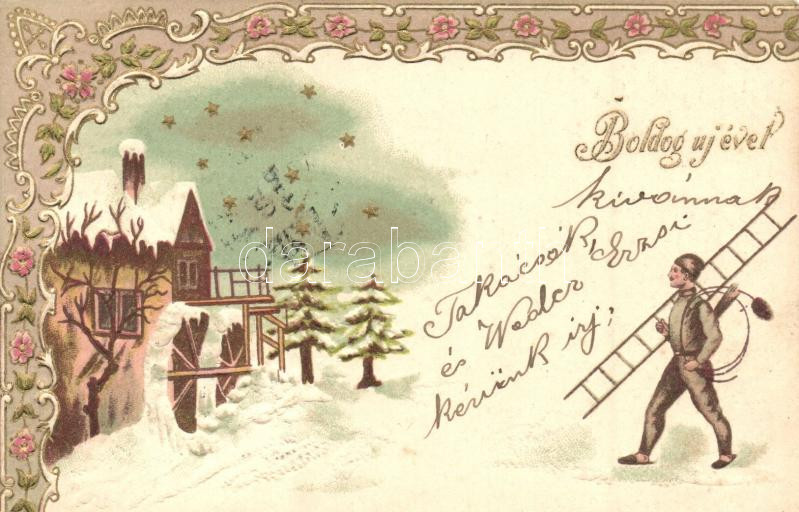 Boldog ujévet
kivánnak
Takácsék, Erzsi
és Weder
kérünk irj;
darabanth